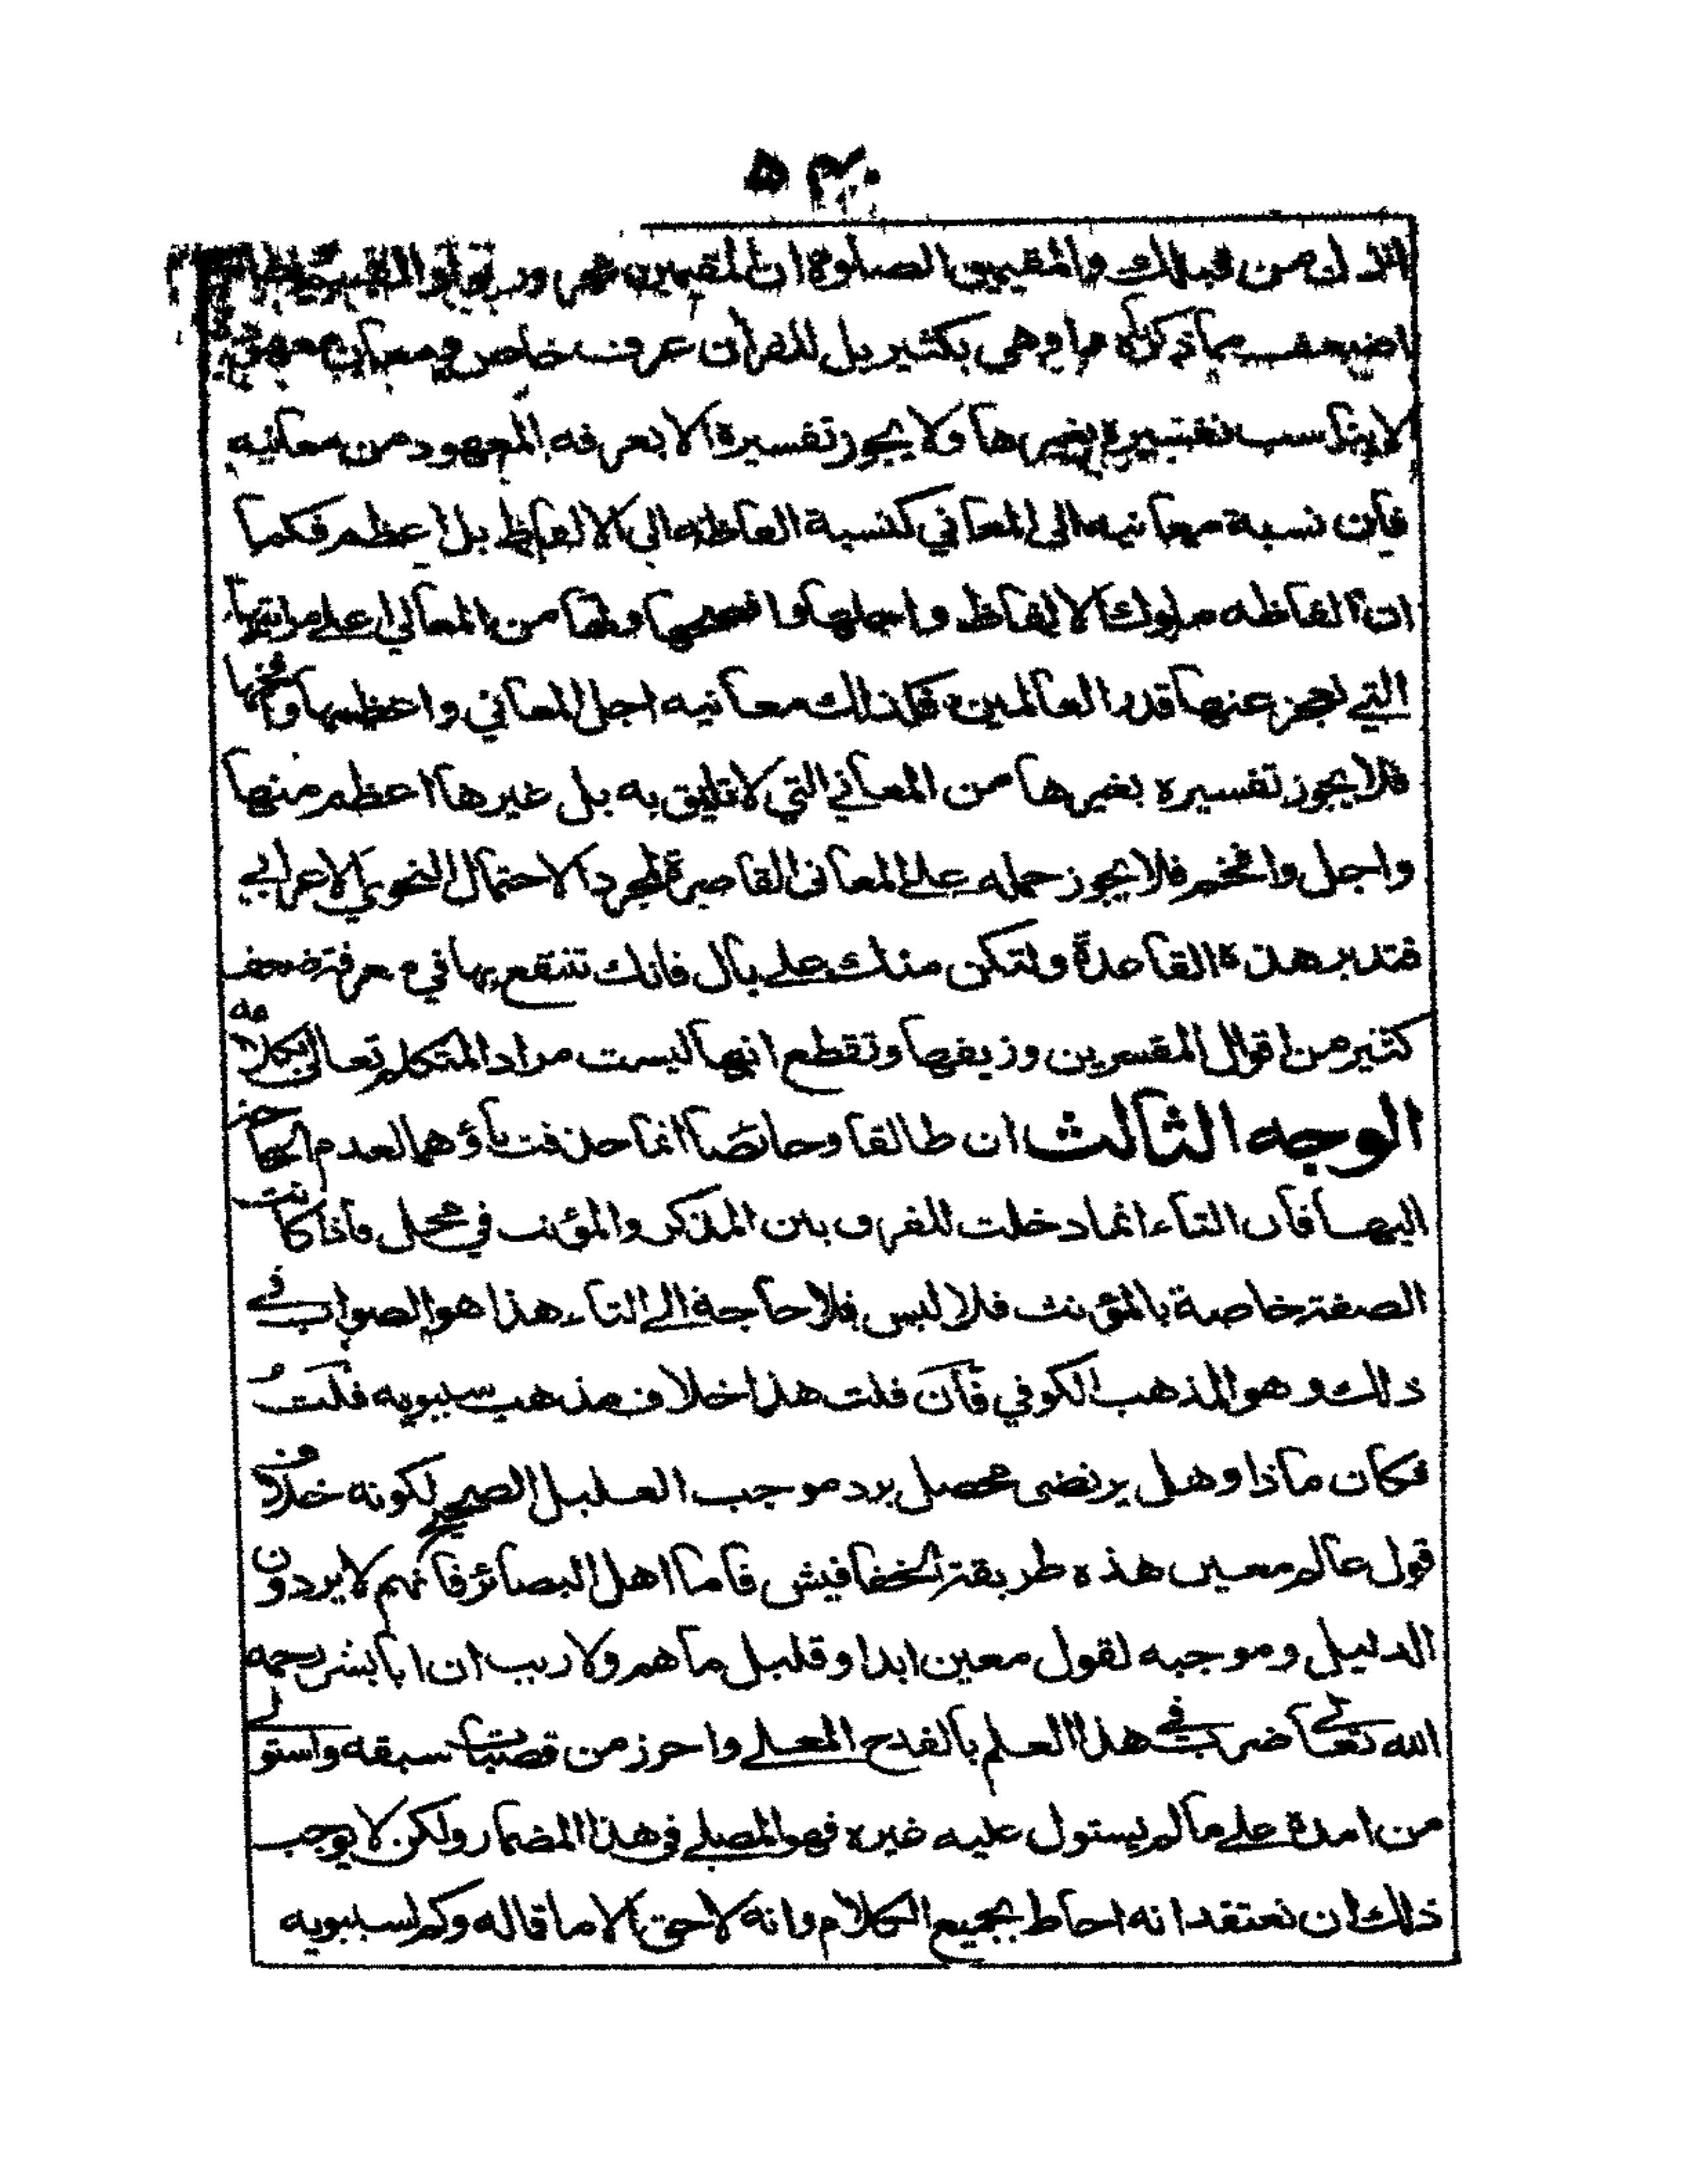 انزل من قبلك والمقيمين الصلوة ان المقيمين مجرور بواو القسم
اضعف مما ذكرناه واوهى بكثير بل للقرآن عرف خاص ومعان معهودة
لا يناسب تفسيره بغيرها ولا يجوز تفسيره الا بعرفه المعهود من معانيه
فان نسبة معانيه الى المعاني كنسبة الفاظه الى الالفاظ بل اعظم فكما
ان الفاظه ملوك الالفاظ واجلها وافصحها ولها من المعاني اعلى مراتبها
التي تعجز عنها قدر العالمين فكذلك معانيه اجل المعاني واعظمها وافخمها
فلا يجوز تفسيره بغيرها من المعاني التي لا تليق به بل غيرها اعظم منها
واجل وافخم فلا يجوز حمله على المعانى القاصرة لمجرد الاحتمال النحوي الاعرابي
فتدبر هذه القاعدة ولتكن منك على بال فانك تنتفع بها في معرفة ضعف
كثير من اقوال المفسرين وزيفها وتقطع انها ليست مراد المتكلم تعالى بكلامه
الوجه الثالث ان طالقا وحائضا انما حذفت تاؤهما لعدم الحاجة
اليها فان التاء انما دخلت للفرق بين المذكر والمؤنث في محل فاذا كانت
الصفة خاصة بالمؤنث فلا لبس فلا حاجة الى التاء هذا هو الصواب في
ذلك وهو المذهب الكوفي فان قلت هذا خلاف مذهب سيبويه قلت
فكان ماذا وهل يرتضى محصل برد موجب الدليل الصحيح لكونه خلاف
قول عالم معين هذه طريقة الخفافيش فاما اهل البصائر فانهم لا يردون
الدليل وموجبه لقول معين ابدا وقليل ما هم ولا ريب ان ابا بشر رحمه
الله تعالى ضرب في هذا العلم بالقدح المعلى واحرز من قصبات سبقه واستولى
من امده على ما لم يستول عليه غيره فهو المصلى في هذا المضمار ولكن لا يوجب
ذلك ان نعتقد انه احاط بجميع الكلام وانه لا حق الا ما قاله وكم لسيبويه